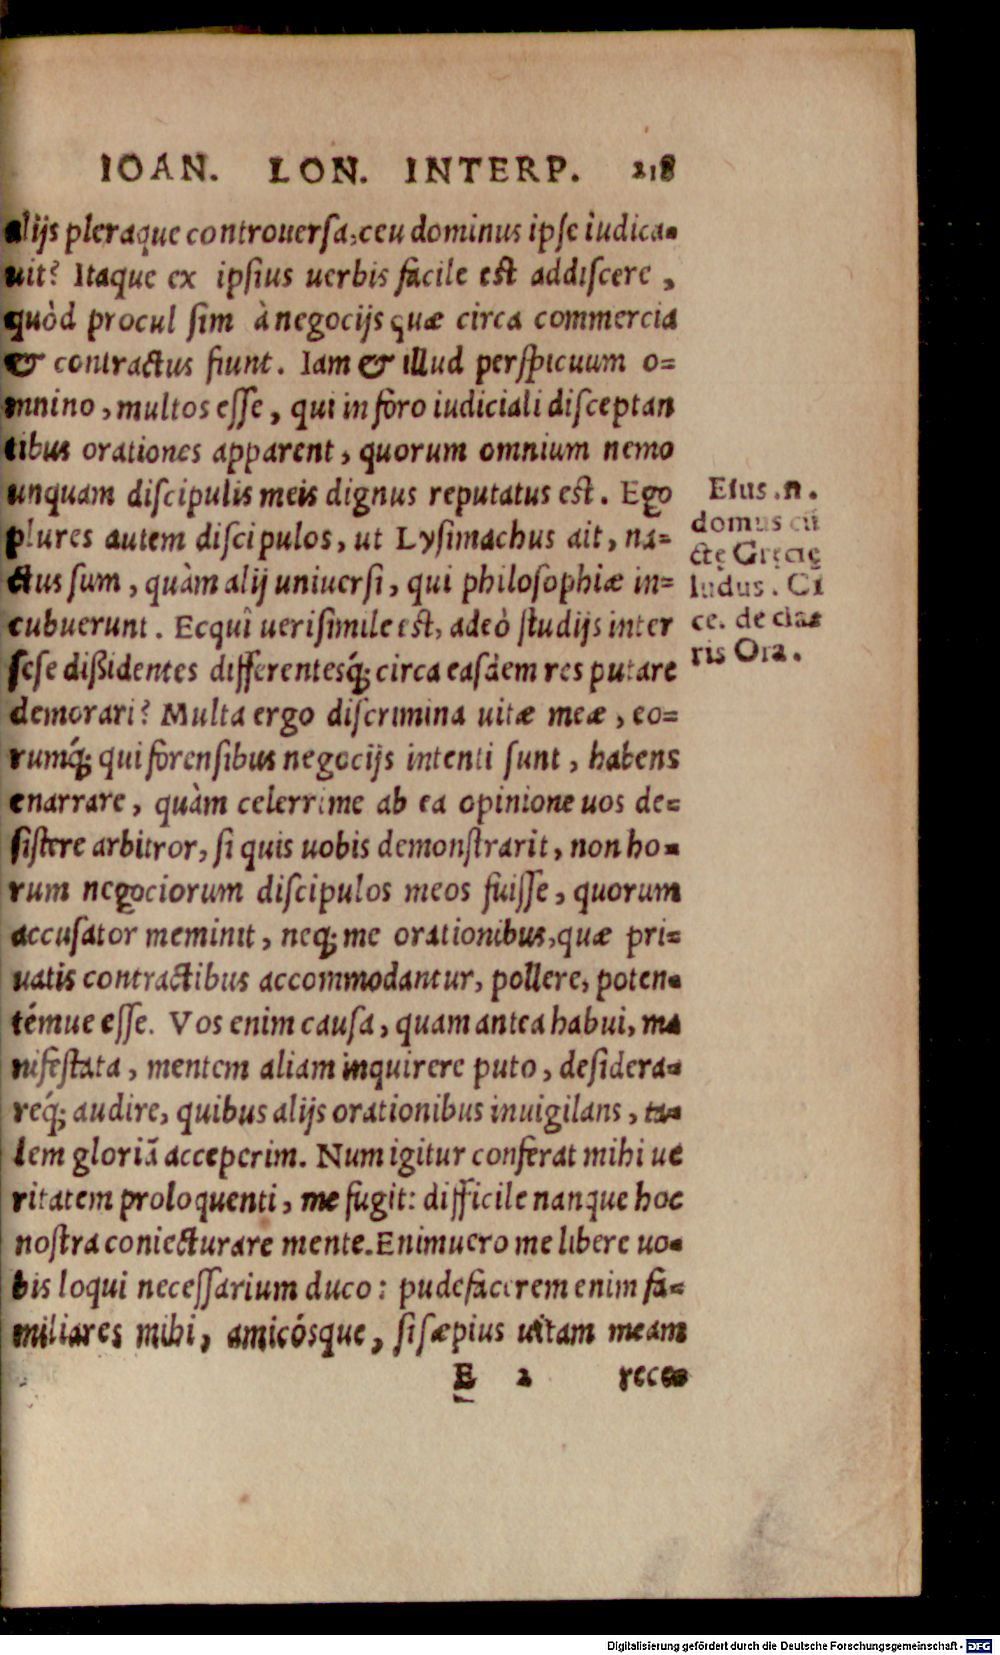 IOAN. LON. INTERP. 218
alijs pleraque controuersa, ceu dominus ipse iudica-
uit? Itaque ex ipsius uerbis facile est addiscere,
quòd procul sim à negocijs quæ circa commercia
& contractus fiunt. Iam & illud perspicuum o-
mnino, multos esse, qui in foro iudiciali disceptan
tibus orationes apparent, quorum omnium nemo
unquam discipulis meis dignus reputatus est. Ego
plures autem discipulos, ut Lysimachus ait, na-
ctus sum, quàm alij uniuersi, qui philosophiæ in-
cubuerunt. Ecquî uerisimile est, adeò studijs inter
sese dißidentes differentesq́; circa easdem res putare
demorari? Multa ergo discrimina uitæ meæ, eo-
rumq́; qui forensibus negocijs intenti sunt, habens
enarrare, quàm celerrime ab ea opinione uos de-
sistere arbitror, si quis uobis demonstrarit, non ho-
rum negociorum discipulos meos fuisse, quorum
accusator meminit, neq; me orationibus, quæ pri-
uatis contractibus accommodantur, pollere, poten-
témue esse. Vos enim causa, quam antea habui, ma
nifestata, mentem aliam inquirere puto, desidera-
req́; audire, quibus alijs orationibus inuigilans, ta-
lem gloriã acceperim. Num igitur conferat mihi ue
ritatem proloquenti, me fugit: difficile nanque hoc
nostra coniecturare mente. Enimuero me libere uo-
bis loqui necessarium duco: pudefacerem enim fa-
miliares mihi, amicósque, si sæpius uitam meam
E 2 reces
Eius .n.
domus cũ
ctę Gręcię
ludus. Ci
ce. de cla-
ris Ora.
Digitalisierung gefördert durch die Deutsche Forschungsgemeinschaft - DFG